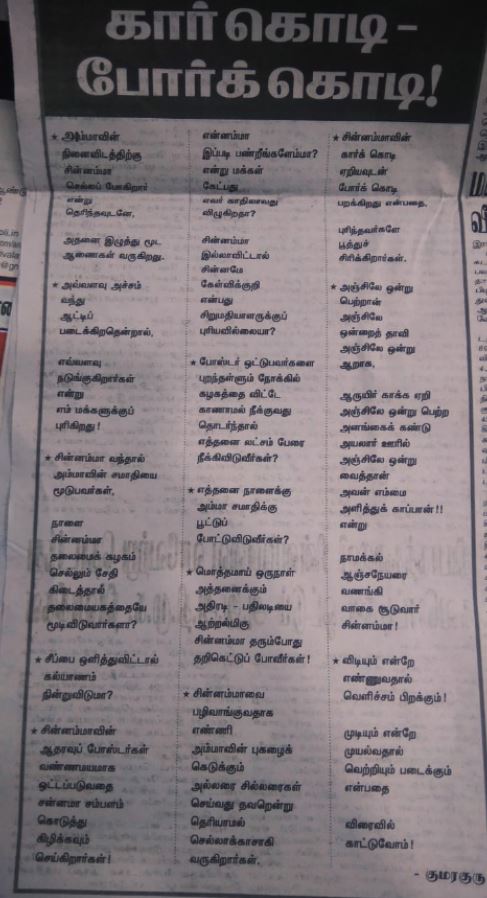 கார் கொடி –
போர்க் கொடி!
★ அம்மாவின்
நினைவிடத்திற்கு
சின்னம்மா
செல்லப் போகிறார்
என்று
தெரிந்தவுடனே,
அதனை இழுத்து மூட
ஆணைகள் வருகிறது.
★ அவ்வளவு அச்சம்
வந்து
ஆட்டிப்
படைக்கிறதென்றால்,
எவ்வளவு
நடுங்குகிறார்கள்
என்று
எம் மக்களுக்குப்
புரிகிறது!
★ சின்னம்மா வந்தால்
அம்மாவின் சமாதியை
மூடுபவர்கள்,
நாளை
சின்னம்மா
தலைமைக் கழகம்
செல்லும் சேதி
கிடைத்தால்
தலைமையகத்தையே
மூடிவிடுவார்களா?
★ சீப்பை ஒளித்துவிட்டால்
கல்யாணம்
நின்றுவிடுமா?
★ சின்னம்மாவின்
ஆதரவுப் போஸ்டர்கள்
வண்ணமயமாக
ஒட்டப்படுவதை
சன்னமா சம்பளம்
கொடுத்து
கிழிக்கவும்
செய்கிறார்கள்!
என்னம்மா
இப்படி பண்றீங்களேம்மா?
என்று மக்கள்
கேட்பது
எவர் காதிலாவது
விழுகிறதா?
சின்னம்மா
இல்லாவிட்டால்
சின்னமே
கேள்விக்குறி
என்பது
சிறுமதியாளருக்குப்
புரியவில்லையா?
★ போஸ்டர் ஒட்டுபவர்களை
புறந்தள்ளும் நோக்கில்
கழகத்தை விட்டே
காணாமல் நீக்குவது
தொடர்ந்தால்
எத்தனை லட்சம் பேரை
நீக்கிவிடுவீர்கள்?
★ எத்தனை நாளைக்கு
அம்மா சமாதிக்கு
பூட்டுப்
போட்டுவிடுவீர்கள்?
★ மொத்தமாய் ஒருநாள்
அத்தனைக்கும்
அதிரடி - பதிலடியை
ஆற்றல்மிகு
சின்னம்மா தரும்போது
தறிகெட்டுப் போவீர்கள்!
★ சின்னம்மாவை
பழிவாங்குவதாக
எண்ணி
அம்மாவின் புகழைக்
கெடுக்கும்
அல்லரை சில்லரைகள்
செய்வது தவறென்று
தெரியாமல்
செல்லாக்காசாகி
வருகிறார்கள்.
★ சின்னம்மாவின்
கார்க் கொடி
ஏறியவுடன்
போர்க் கொடி
பறக்கிறது என்பதை,
புரிந்தவர்களே
பூத்துச்
சிரிக்கிறார்கள்.
★ அஞ்சிலே ஒன்று
பெற்றான்
அஞ்சிலே
ஒன்றைத் தாவி
அஞ்சிலே ஒன்று
ஆறாக,
ஆருயிர் காக்க ஏறி
அஞ்சிலே ஒன்று பெற்ற
அனங்கைக் கண்டு
அயலார் ஊரில்
அஞ்சிலே ஒன்று
வைத்தான்
அவன் எம்மை
அளித்துக் காப்பான்!!
என்று
நாமக்கல்
ஆஞ்சநேயரை
வணங்கி
வாகை சூடுவார்
சின்னம்மா!
★ விடியும் என்றே
எண்ணுவதால்
வெளிச்சம் பிறக்கும்!
முடியும் என்றே
முயல்வதால்
வெற்றியும் படைக்கும்
என்பதை
விரைவில்
காட்டுவோம்!
- குமரகுரு